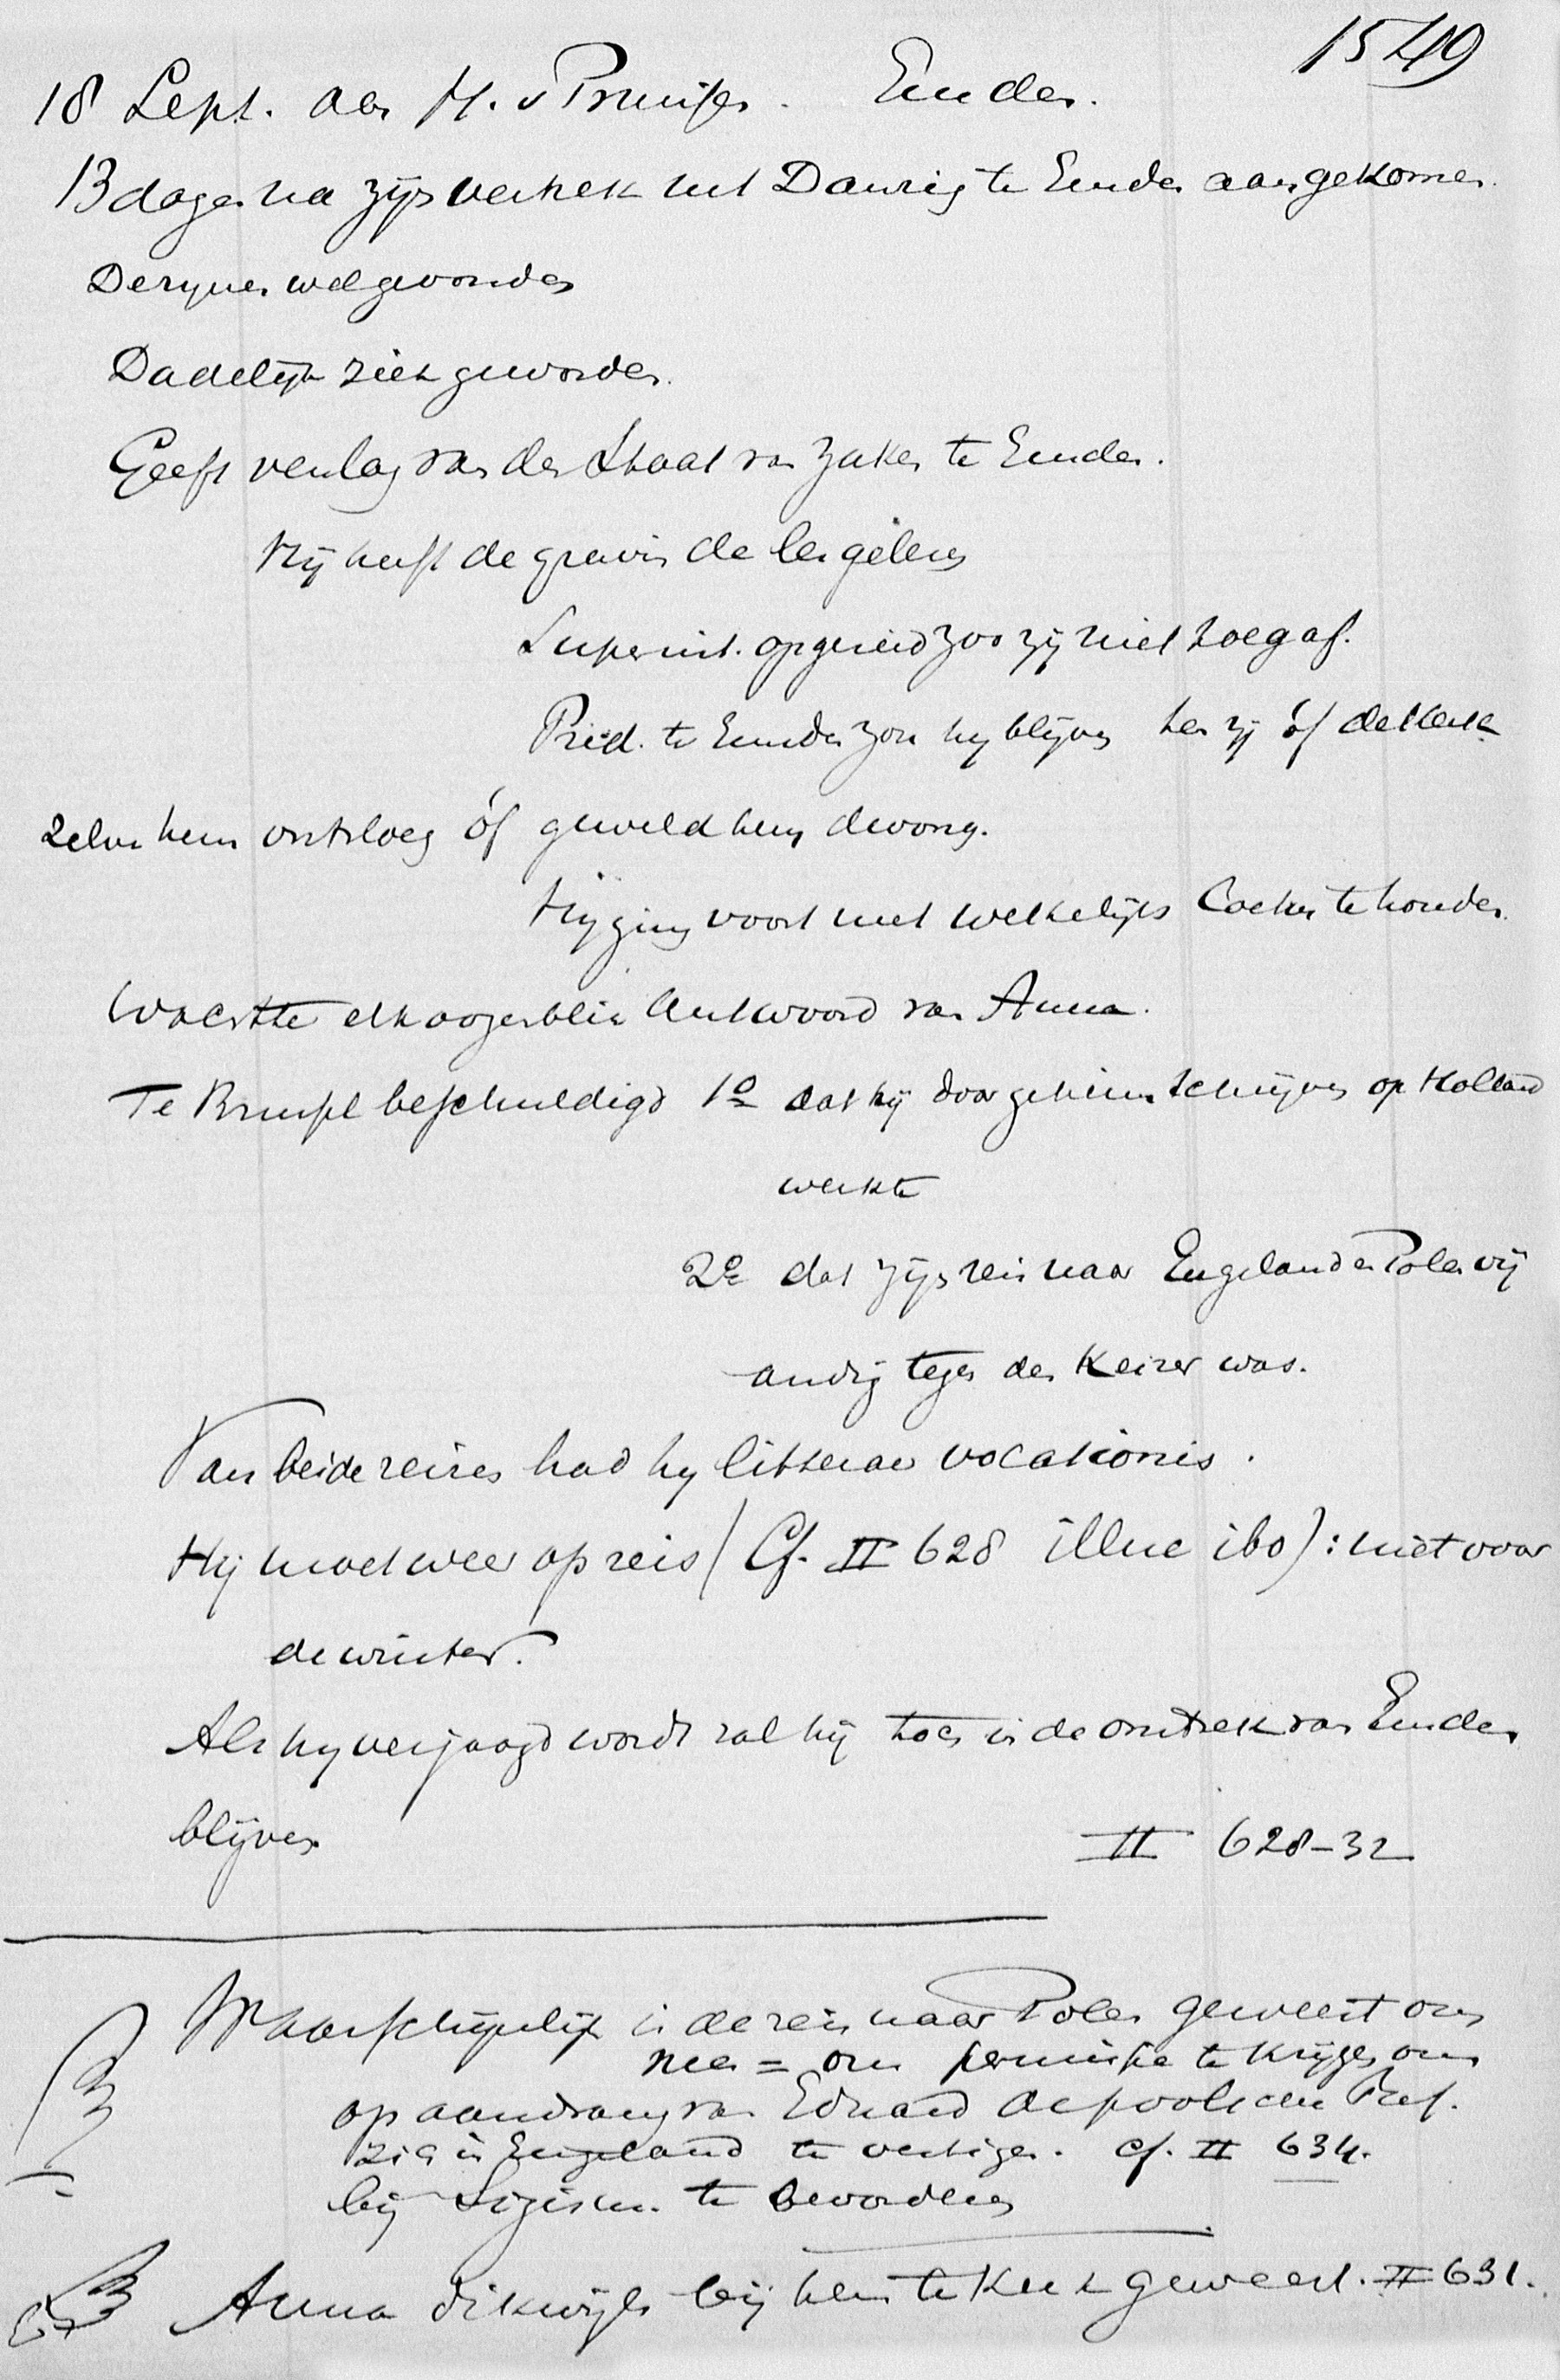 1549
18 Sept. aan H. v Pruisen. Emden.
13 dagen na zijn vertrek uit Danzig te Emden aangekomen.
De zynen wel gevonden
Dadelijk ziek geworden.
Geeft verslag van den staat van zaken te Emden.
Hij heeft de gravin de les gelezen
Superint. opgezeid zoo zij niet toegaf.
Pred. te Emden zou hy blijven tenzij óf de kerk
zelve hem ontsloeg óf geweld hem dwong.
Hy ging voort met wekelijks Coetus te houden.
Wachtte elk oogenblik Antwoord van Anna.
Te Brussel beschuldigd 1o dat hij door geheim schrijven op Holland
werkte
2e dat zijn reis naar Engeland en Polen vij
andig tegen den Keizer was.
Van beide reizen had hy litterae vocationis.
Hij moet weer op reis (Cf. II 628 illuc ibo): niet voor
de winter.
Als hy verjaagd wordt zal hij toch in de omtrek van Emden
blijven II 628-32
Waarschijnlijk is de reis naar Polen geweest om
nee = om permissie te krijgen om
op aandrang van Eduard de poolschen Ref.
zich in Engeland te vestigen. cf. II 634.
bij Sigism. te bevorderen
Anna dikwijls bij hem te Kerk geweest. II 631.